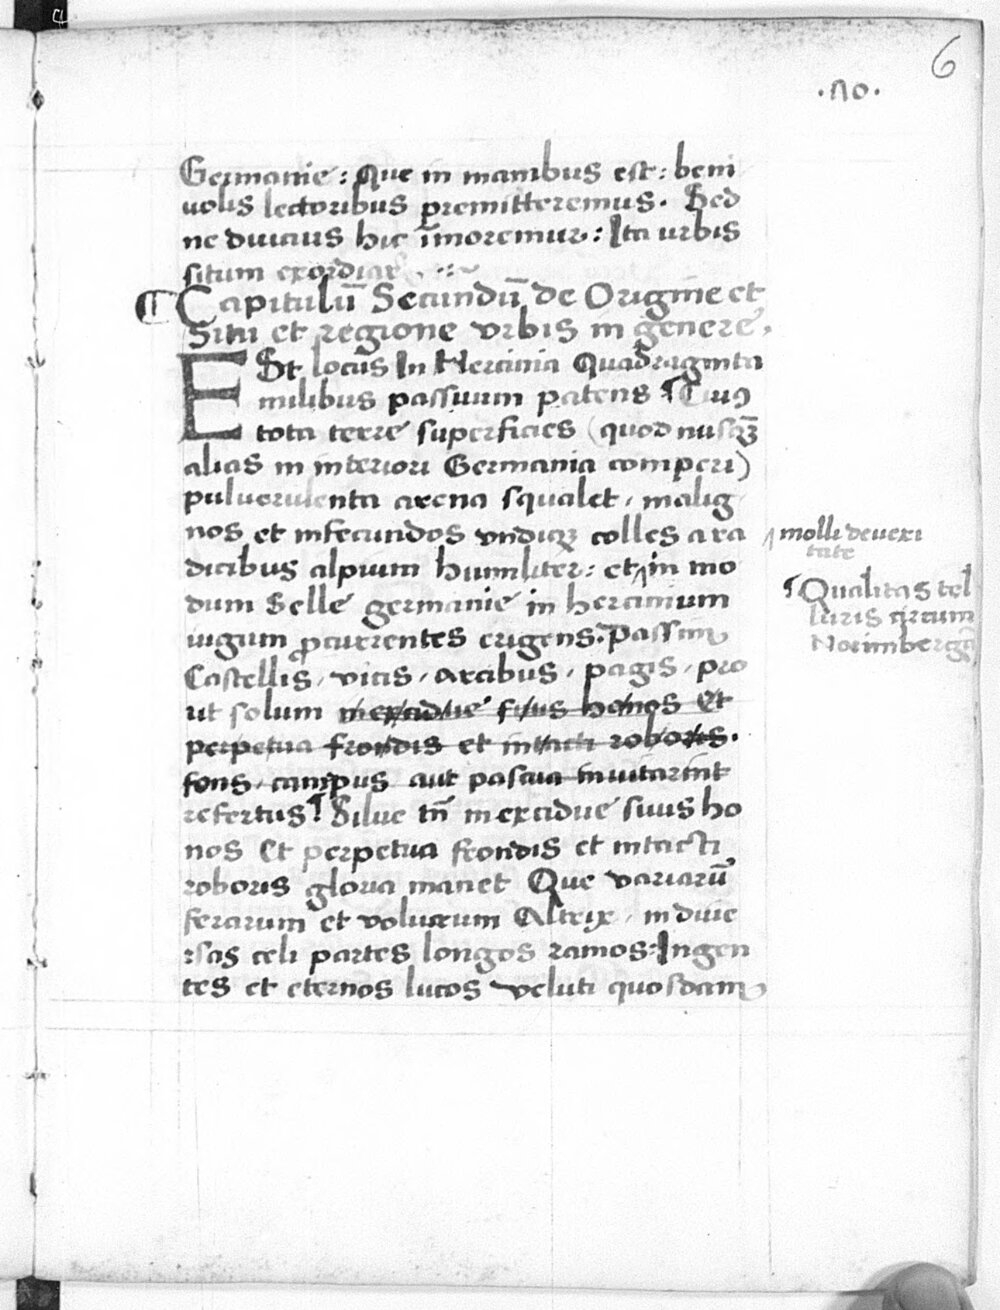 6
·no·
Germanie: Que in manibus est: beni
uolis lectoribus premitteremus. Sed
ne diucius hic īmoremur: Ita urbis
situm exordiar
Capitulū Secundū de Origine et
Situ et regione vrbis in genere.
ESt locus In Hercinia Quadraginta
milibus passuum patens ¶ Cuiꝰ
tota terre superficies (quod nusqꝫ
alias in interiori Germania comperi)
puluerulenta arena squalet, malig
nos et infecundos vndiqꝫ colles a ra
dicibus alpium humiliter: et in mo
dum Selle germanie in hercinium
iugum ꝓcurrentes erigens. Passim
Castellis, vicis, arcibus, pagis, pro
ut solum inexcidue siluis honos Et
perpetua frondis et intacti roboris.
fons, campus aut pascua inuitarint
refertus ¶ Silue tñ inexcidue suus ho
nos Et perpetua frondis et intacti
roboris gloria manet Que variarū
ferarum et volucrum Altrix, in diue
rsas celi partes longos ramos: Ingen
tes et eternos lucos veluti quosdam
molli deuexi
tate
¶ Qualitas tel
luris circum
Norimbergā